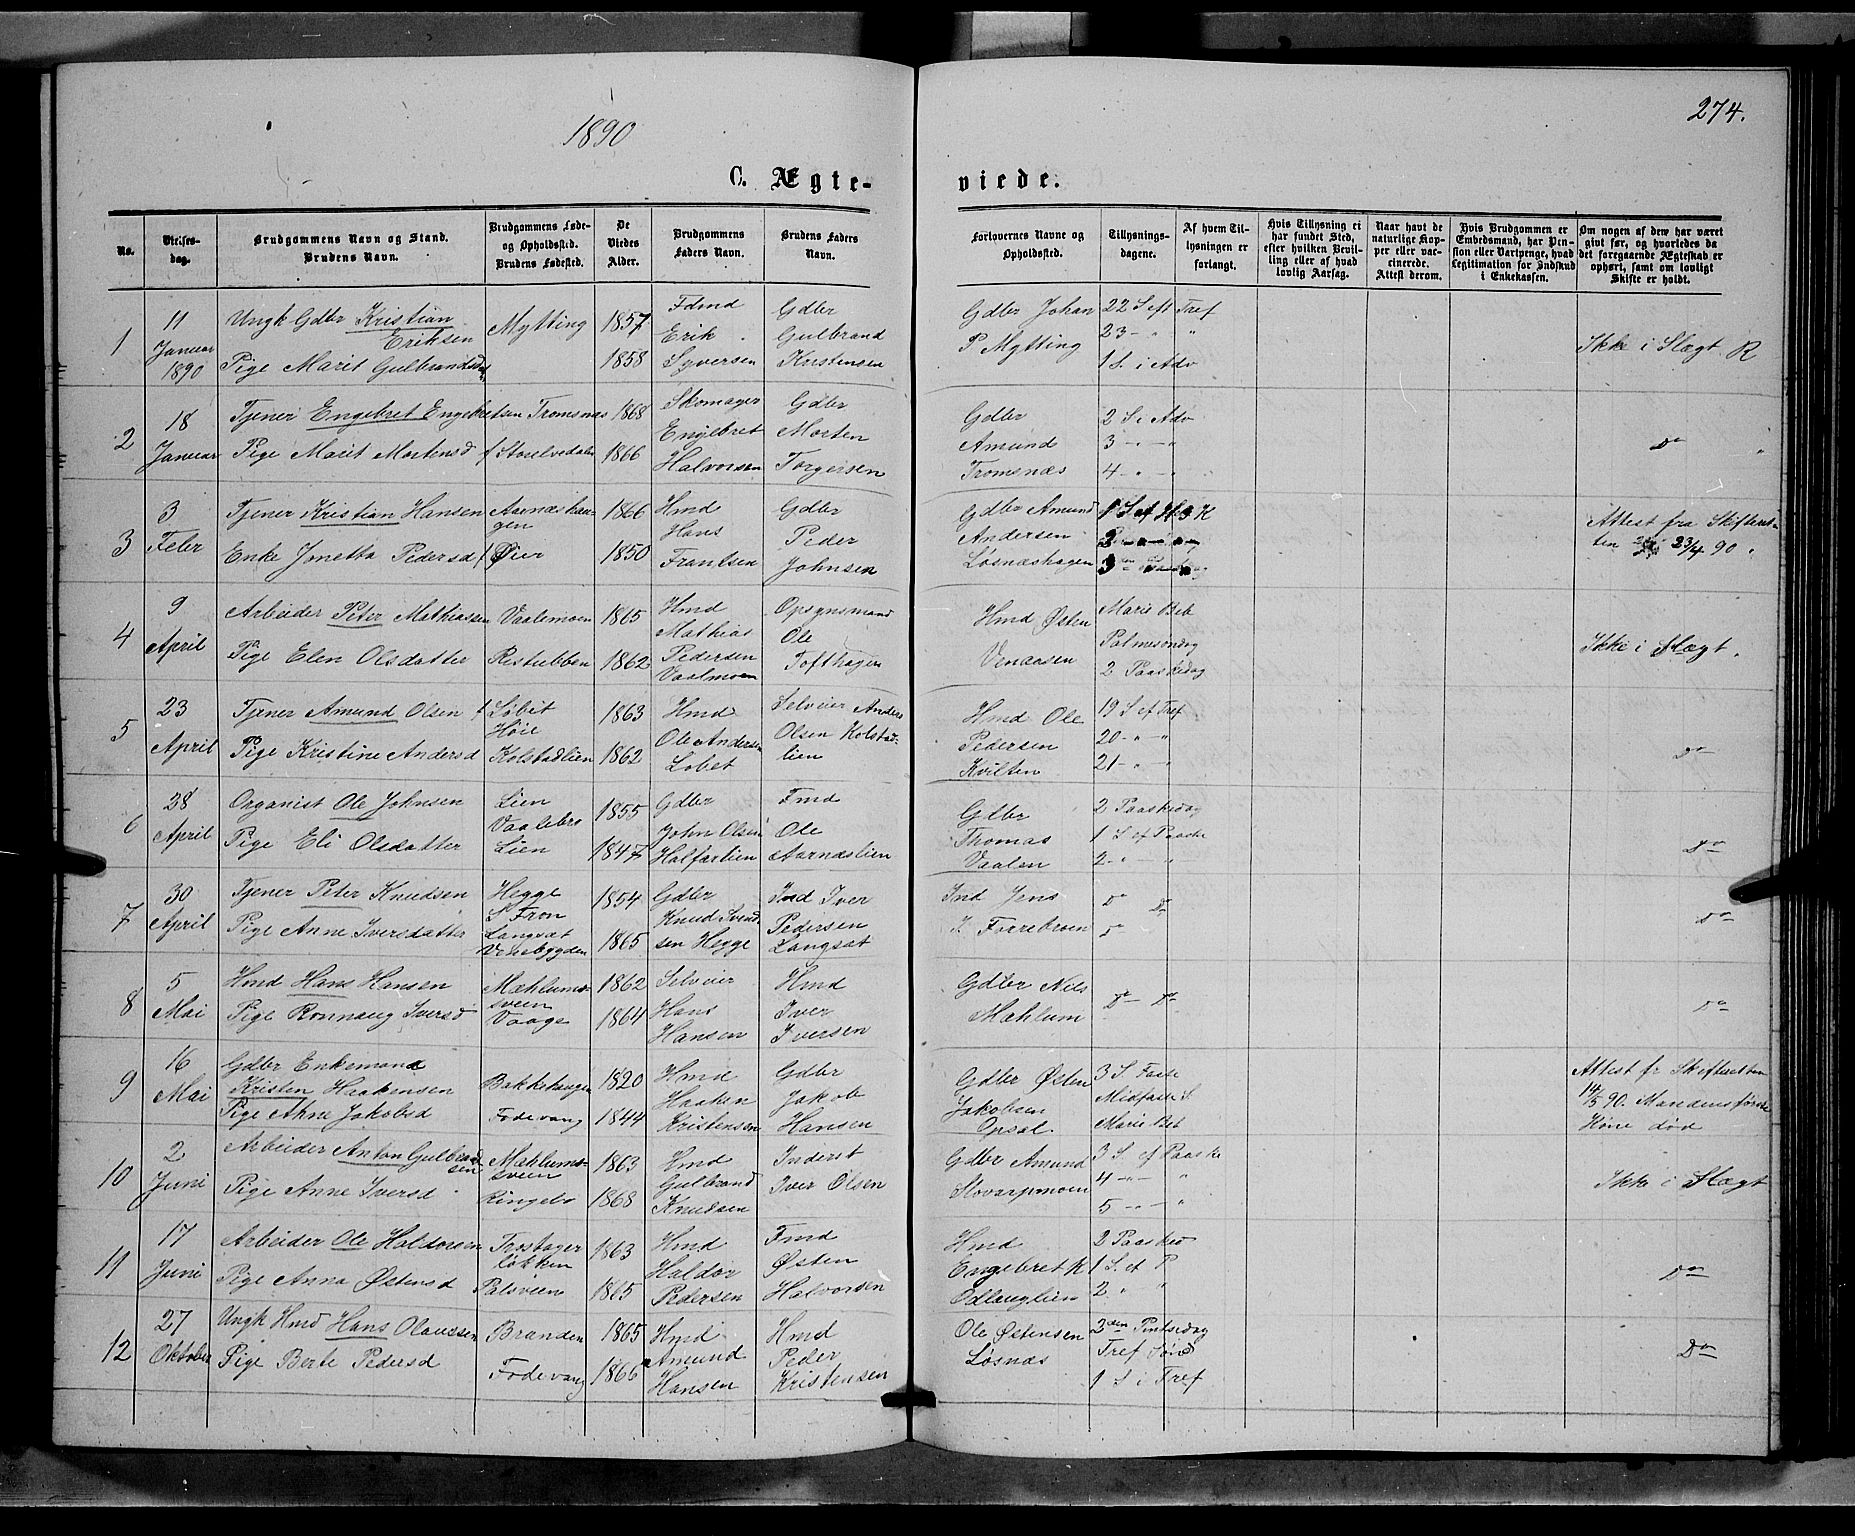 274.
1890
C. Ægte-
viede.
No.
Vielses-
dag.
Brudgommens Navn og Stand.
Brudens Navn.
Brudgommens Føde-
og Opholdssted.
Brudens Fødested.
De
Viedes
Alder.
Brudgommens
Faders Navn.
Brudens Faders
Navn.
Forlovernes Navne og
Opholdssted.
Tillysnings-
dagene.
Af hvem Til-
lysningen er
forlangt.
Hvis Tillysning ei
har fundet Sted,
efter hvilken Bevil-
ling eller af hvad
lovlig Aarsag.
Naar havt de
naturlige Kop-
per eller vac-
cinerede.
Attest derom.
Hvis Brudgommen er
Embedsmand, har Pen-
sion eller Vartpenge, hvad
Legitimation for Indskud
i Enkekassen.
Om nogen af dem har været
givt før, og hvorledes da
det foregaaende Ægteskab er
ophørt, samt om lovligt
Skifte er holdt.
1
11
Januar
1890
Ungk Gdbr Kristian
Eriksen
Pige Marit Gulbrandsd
Mytting
1857
1858
Fdmd
Erik
Syversen
Gdbr
Gulbrand
Kristensen
Gdbr Johan
P Mytting
22 S eft Tref
23 - " "
1 S. i Adv
Ikke i Slægt R
2
18
Januar
Tjener Engebret Engebretsen
Pige Marit Mortensd
Tromsnæs
f Storelvedalen
1868
1866
Skomager
Engebret
Halvorsen
Gdbr
Morten
Torgersen
Gdbr
Amund
Tromsnæs
2 S i Adv
3 - " - "
4 - " - "
Do
3
3
Febr
Tjener Kristian Hansen
Enke Jonetta Pedersd
Aarnæshau-
gen
f Øier
1866
1850
Hmd
Hans
Frantsen
Gdbr
Peder
Johnsen
Gdbr Amund
Andersen
Løsnæshagen
1 S ef H 3 K
2 - " - "
3
Attest fra Skifteret-
ten 23/4 90
4
9
April
Arbeider Peter Mathiassen
Pige Elen Olsdatter
Vaalemoen
Ristubben
1865
1862
Hmd
Mathias
Pedersen
Vaalmoen
Opsynsmand
Ole
Tofthagen
Hmd Østen
Venaasen
Marie Beb
Palmesøndag
2 Paaskedag
Ikke i Slægt.
5
23
April
Tjener Amund Olsen
Pige Kristine Andersd
f Løbet
Høie
Kolstadlien
1863
1862
Hmd
Ole Andersen
Lobet
Selveier Anders
Olsen Kolstad-
lien
Hmd Ole
Pedersen
Kvilten
19 S ef Tref
20 - " - "
21 - " - "
Do
6
28
April
Organist Ole Johnsen
Pige Eli Olsdatter
Lien
Vaalebro
Lien
1855
1847
Gdbr
John Olsen
Halfarlien
Fmd
Ole
Aarnæslien
Gdbr
Thomas
Vaalen
2 Paaskedag
1 S ef Paaske
2 - " - "
Do
7
30
April
Tjener Peter Knudsen
Pige Anne Iversdatter
Hegge
S Fron
Langsæt
Venebygden
1854
1865
Gdbr
Knud Svend-
sen Hegge
Ind Iver
Pedersen
Langsæt
Ind Jens
J. Forrebroen
Do Do
Do
Do
8
5
Mai
Hmd Hans Hansen
Pige Ronnaug Iversd
Mæhlums-
sveen
Vaage
1862
1864
Selveier
Hans
Hansen
Hmd
Iver
Iversen
Gdbr Nils
Mæhlum
Do Do
Do
9
16
Mai
Gdbr Enkemand
Kristen Haakensen
Pige Ahne Jakobsd
Bakkehaugen
Fodevang
1820
1844
Hmd
Haaken
Kristensen
Gdbr
Jakob
Hansen
Gdbr Østen
Jakobsen
Opsal.
3 S. Faste
Midfaste S
Marie Beb
Attest fr Skifteretten
14/5 90. Mandens første
Kone død
10
2
Juni
Arbeider Anton Gulbrand-
sen
Pige Anne Iversd
Mæhlums-
sveen
Ringebo
1863
1868
Hmd
Gulbrand
Knudsen
Inderst
Iver Olsen
Gdbr Amund
Slovarpmoen
3 S. ef Paaske
4 - " - "
5 - " - "
Ikke i Slægt
11
17
Juni
Arbeider Ole Haldorsen
Pige Anna Østensd
Trostager
løkken
Palsveen
1863
1865
Hmd
Haldor
Pedersen
Fmd
Østen
Halvorsen
Hmd
Engebret K
Odlauglien
2 Paasked
1 S. ef P
2 " "
Do
12
27
Oktober
Ungk Hmd Hans Olaussen
Pige Berte Pedersd
Branden
Fodevang
1865
1866
Hmd
Amund
Hansen
Hmd
Peder
Kristensen
Ole Østensen
Løsnæs
2den Pintsedag
Tref Sønd
1 S i Tref
Do